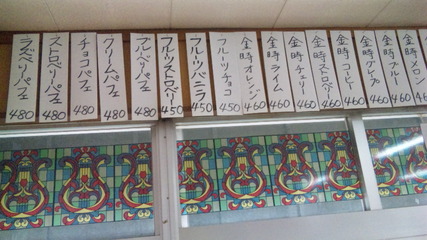 ラズベリーパフェ 480
ストロベリーパフェ 480
チョコパフェ 480
クリームパフェ 480
ブルーベリーパフェ 480
フルーツストロベリー 450
フルーツバニラ 450
フルーツチョコ 450
金時オレンジ 460
金時ライム 460
金時チェリー 460
金時ストロベリー 460
金時コーヒー 460
金時グレープ 460
金時ブルー 460
金時メロン 460